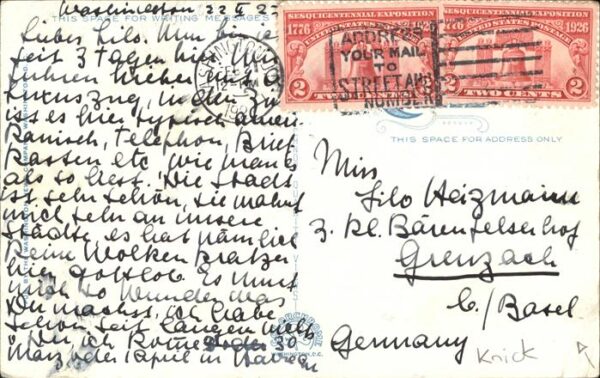 Washington 22 II 27
THIS SPACE FOR WRITING MESSAGES
Liebes Lilo. Nun bin ich
seit 3 Tagen hier. Wir
fuhren hieher mit
Luxuszug, in den
ist es hier typisch ameri-
kanisch, Telephon, Brief
Kassen etc wie man
als so liest. Die Stadt
ist sehr schön, sie mahnt
mich sehr an unsere
Städte, es hat nämlich
keine Wolken Kratzer
hier gottlob. Es nimmt
mich so Wunder was
Du machst, ich habe
schon seit langem nichts
ich komme 30
März oder 1 April in Havre
SESQUICENTENNIAL EXPOSITION
1776
UNITED STATES POSTAGE
2
TWO CENTS
SESQUICENTENNIAL EXPOSITION
1776 1926
UNITED STATES POSTAGE
2 TWO CENTS 2
WASHINGTON
ADDRESS
YOUR MAIL
TO
STREET AND
NUMBER
THIS SPACE FOR ADDRESS ONLY
Miss
Lilo Heizmann
z. Kl. Bärenfelserhof
Grenzach
b/ Basel
Germany
Knick
WASHINGTON, D.C.